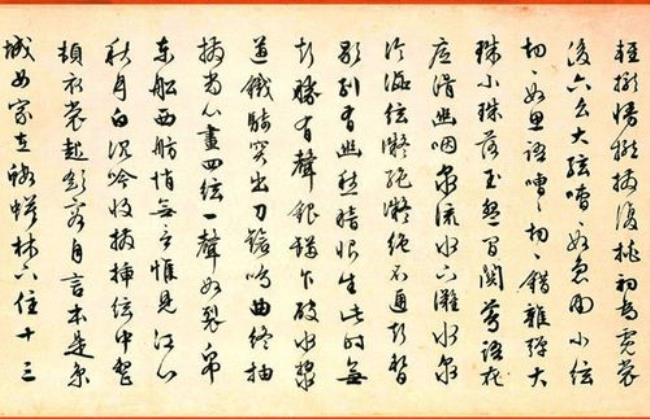 輕攏慢撚抹復挑初為霓裳
後六么大弦嘈〻如急雨小弦
切〻如私語嘈〻切〻錯雜彈大
珠小珠落玉盤間關鶯語花
底滑幽咽泉流水下灘水泉
冷澀弦凝絕凝絕不通聲暫
歇別有幽愁暗恨生此時無
聲勝有聲銀瓶乍破水漿
迸鐵騎突出刀鎗鳴曲終抽
撥當心畫四弦一聲如裂帛
東船西舫悄無言惟見江心
秋月白沉吟收撥插弦中整
頓衣裳起斂容自言本是京
城女家在蝦蟆陵下住十三